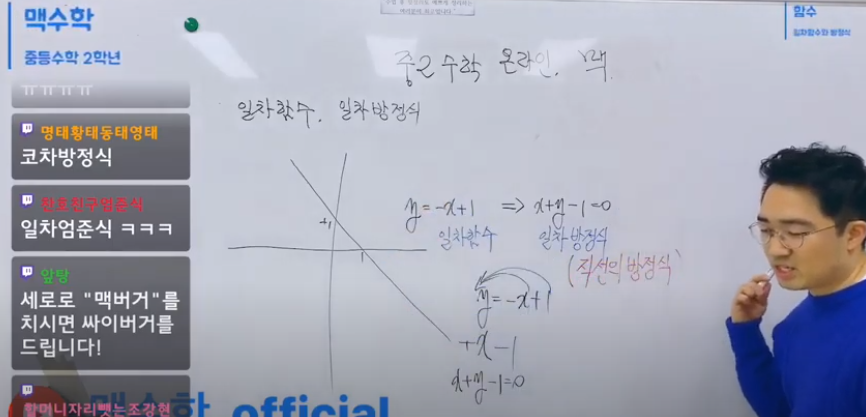 맥수학
중등수학 2학년
함수
일차함수와 방정식
중2 수학 온라인. 맥.
일차함수. 일차방정식
ㅠㅠㅠㅠ
명태황태동태영태
코차방정식
찬호친구엄준식
일차엄준식 ㅋㅋㅋ
앞탕
세로로 "맥버거"를
치시면 싸이버거를
드립니다!
할머니자리뺏는조강현
+1
1
y=-x+1 => x+y-1=0
일차함수 일차방정식
(직선의 방정식)
y=-x+1
+x-1
x+y-1=0
맥수학 official